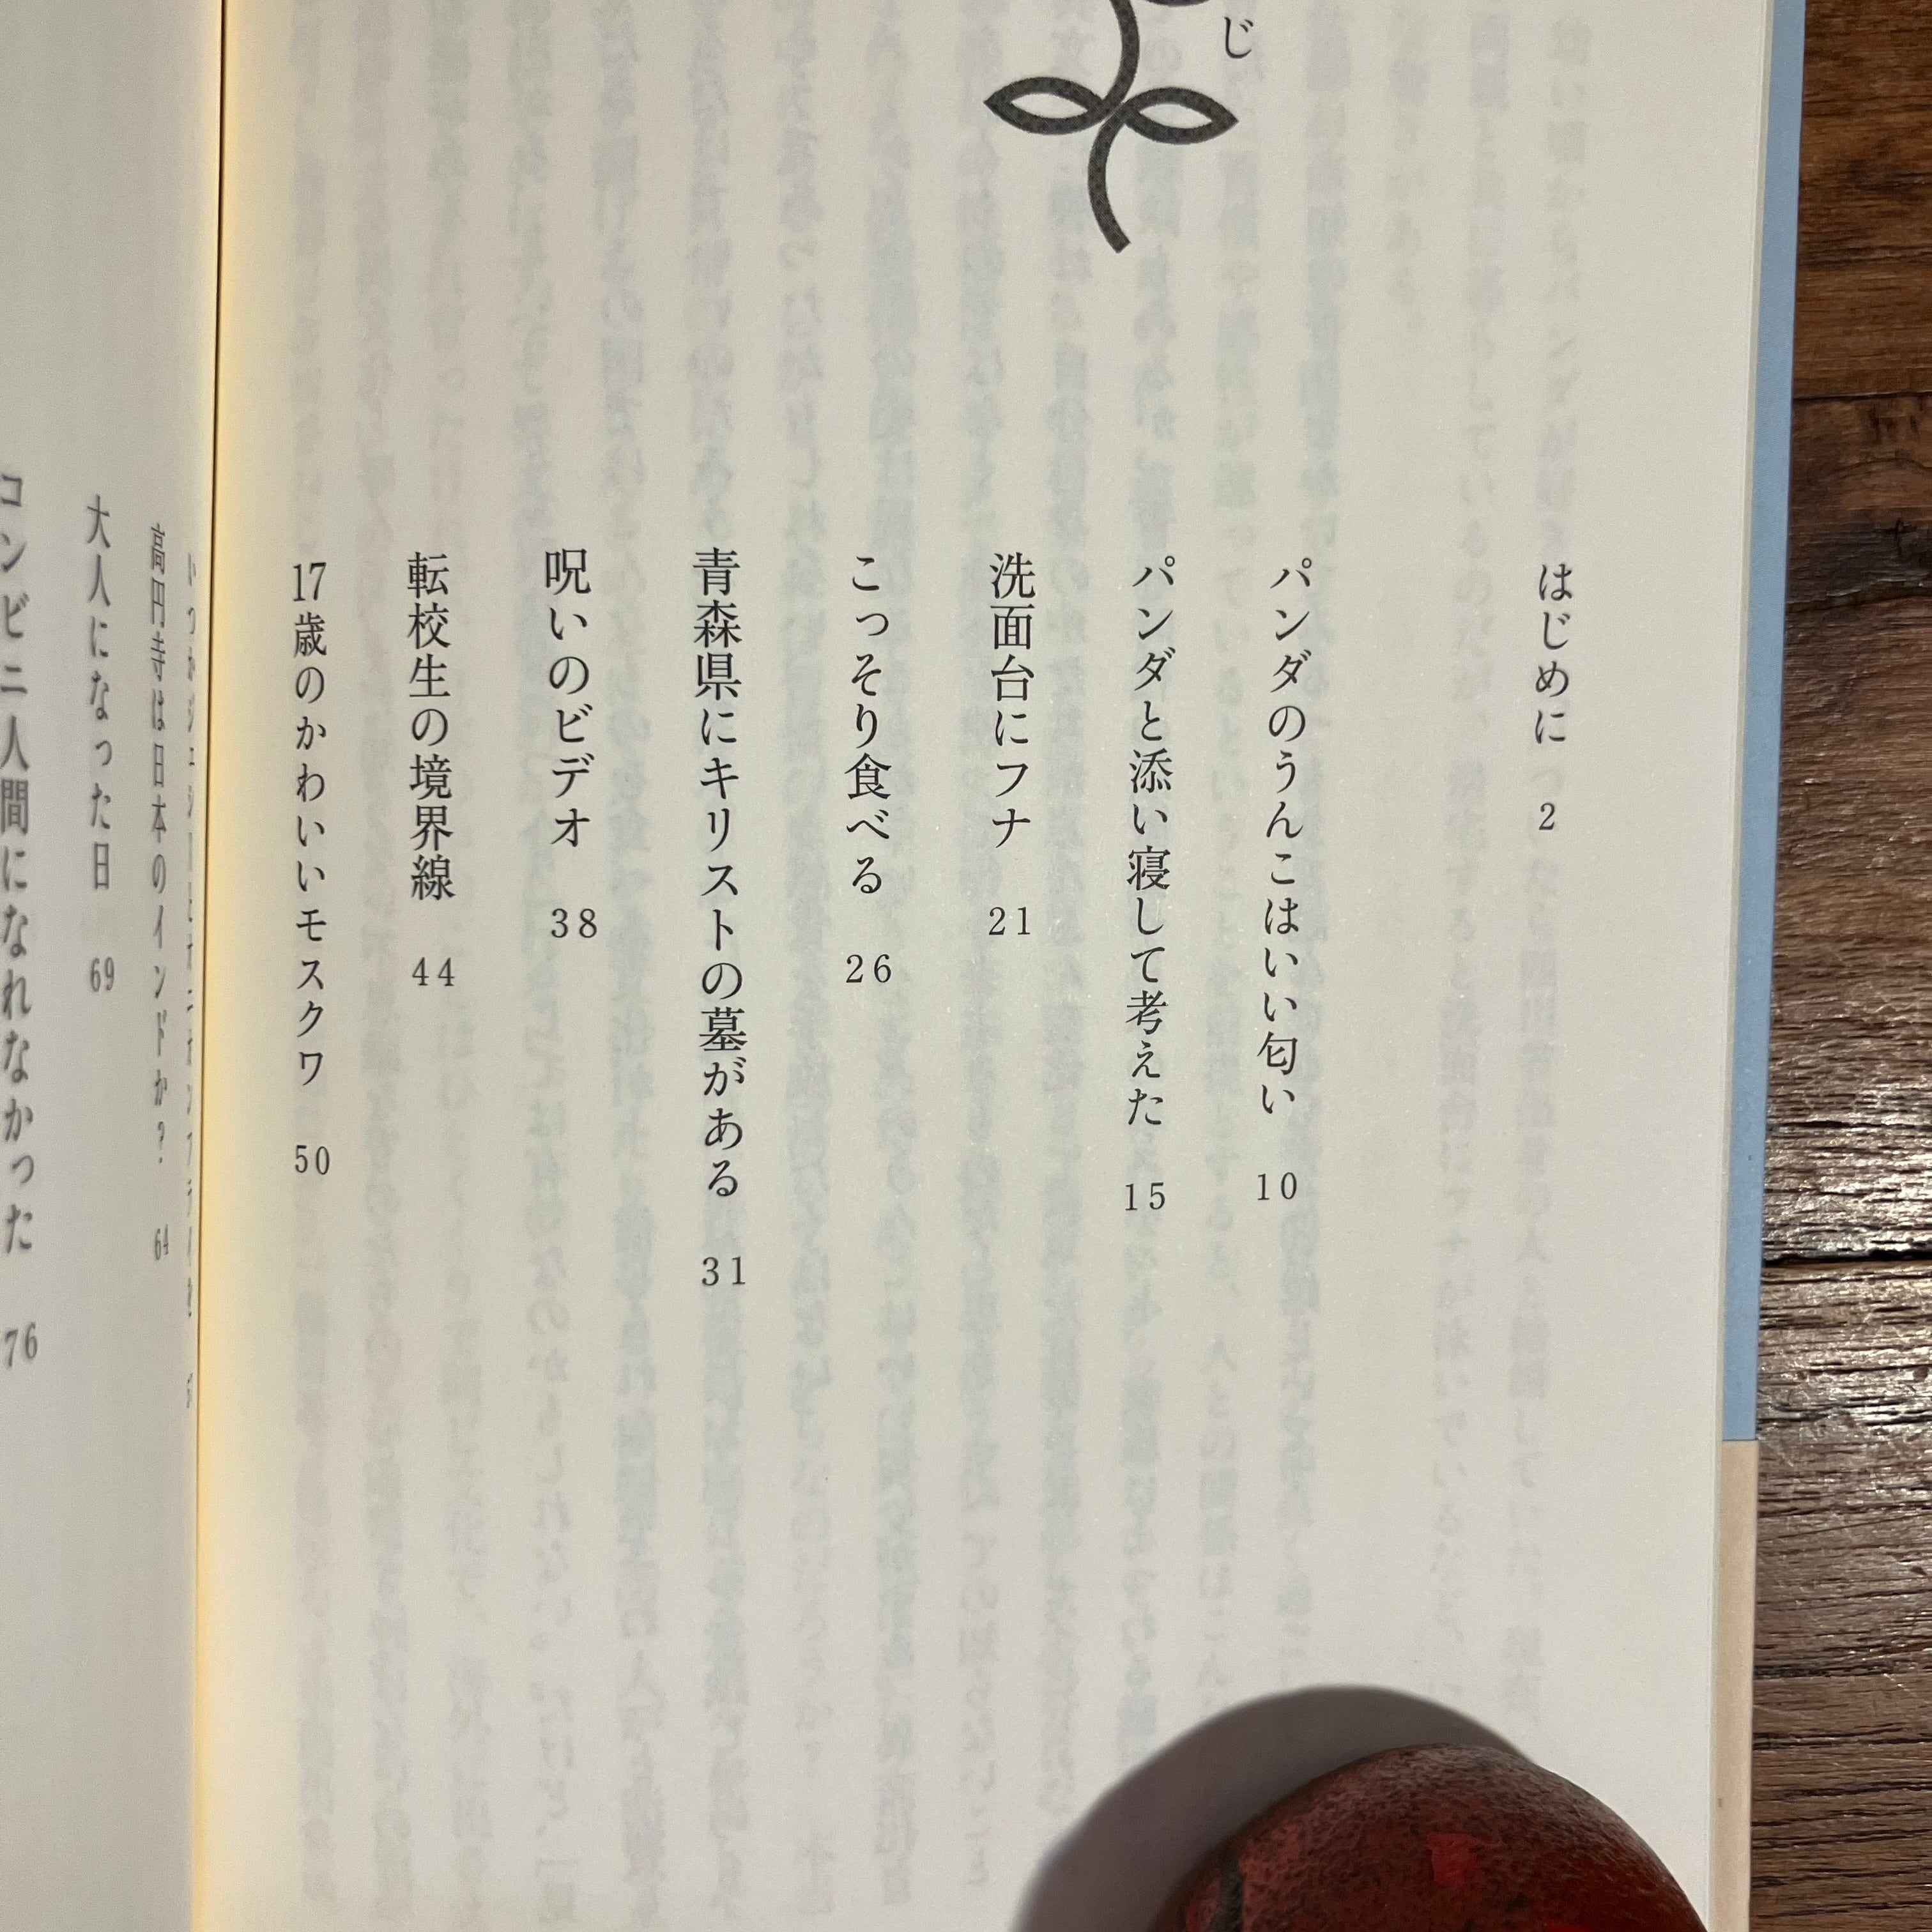 じ
はじめに 2
パンダのうんこはいい匂い 10
パンダと添い寝して考えた 15
洗面台にフナ 21
こっそり食べる 26
青森県にキリストの墓がある 31
呪いのビデオ 38
転校生の境界線 44
17歳のかわいいモスクワ 50
高円寺は日本のインドか？ 64
大人になった日 69
コンビニ人間になれなかった 76